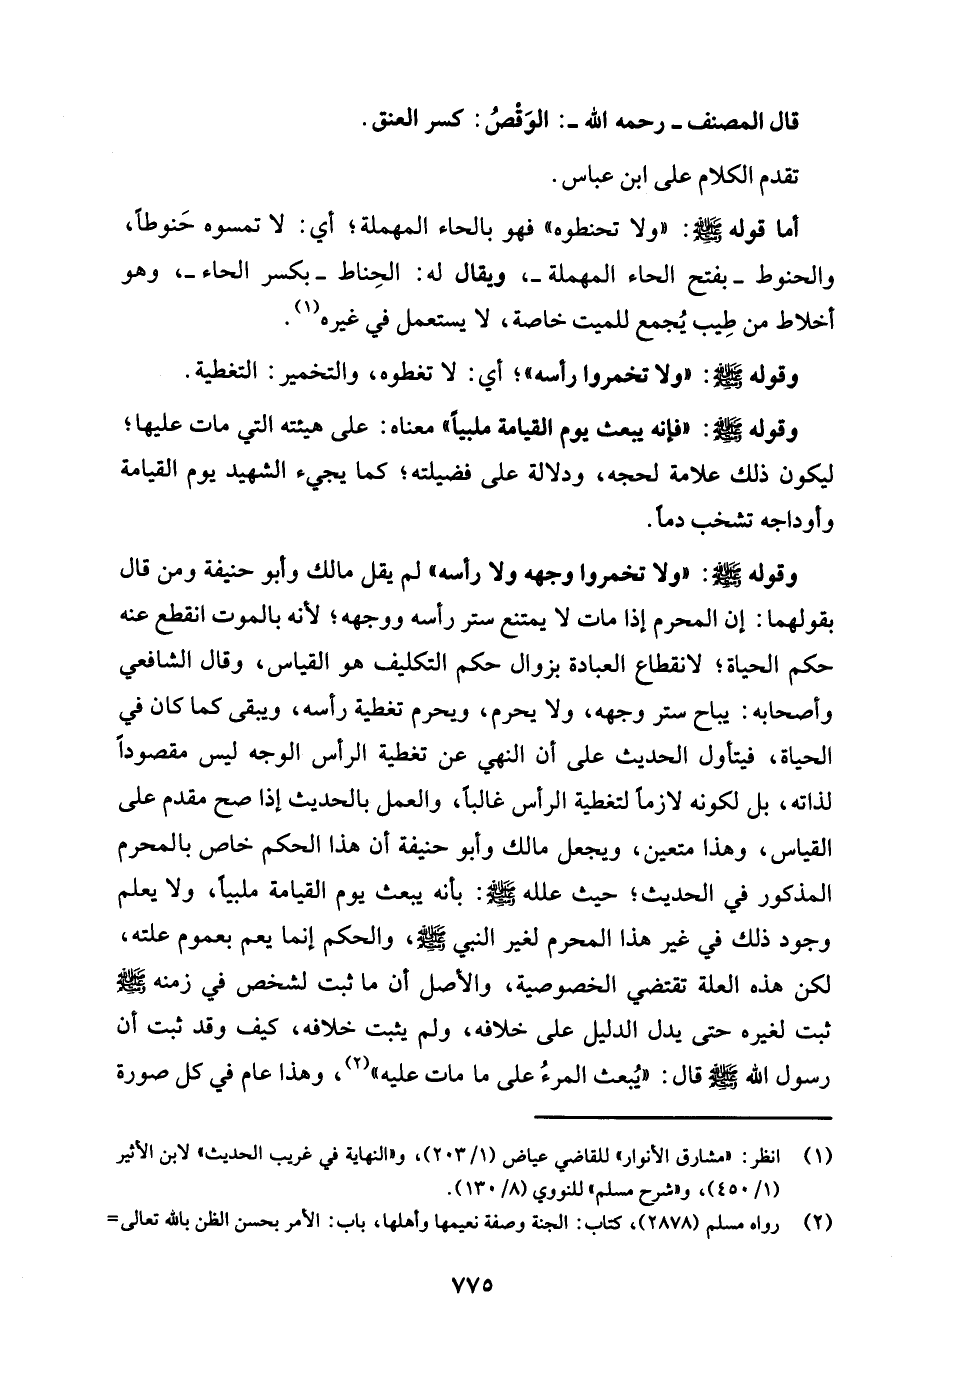 قال المصنف ـ رحمه الله ـ: الوَقْصُ: كسر العنق.
تقدم الكلام على ابن عباس.
أما قوله ﷺ: «ولا تحنطوه» فهو بالحاء المهملة؛ أي: لا تمسوه حَنوطاً،
والحنوط ـ بفتح الحاء المهملة ـ، ويقال له: الحِناط ـ بكسر الحاء ـ، وهو
أخلاط من طِيب يُجمع للميت خاصة، لا يستعمل في غيره(١).
وقوله ﷺ: «ولا تخمروا رأسه»؛ أي: لا تغطوه، والتخمير: التغطية.
وقوله ﷺ: «فإنه يبعث يوم القيامة ملبياً» معناه: على هيئته التي مات عليها؛
ليكون ذلك علامة لحجه، ودلالة على فضيلته؛ كما يجيء الشهيد يوم القيامة
وأوداجه تشخب دماً.
وقوله ﷺ: «ولا تخمروا وجهه ولا رأسه» لم يقل مالك وأبو حنيفة ومن قال
بقولهما: إن المحرم إذا مات لا يمتنع ستر رأسه ووجهه؛ لأنه بالموت انقطع عنه
حكم الحياة؛ لانقطاع العبادة بزوال حكم التكليف هو القياس، وقال الشافعي
وأصحابه: يباح ستر وجهه، ولا يحرم، ويحرم تغطية رأسه، ويبقى كما كان في
الحياة، فيتأول الحديث على أن النهي عن تغطية الرأس الوجه ليس مقصوداً
لذاته، بل لكونه لازماً لتغطية الرأس غالباً، والعمل بالحديث إذا صح مقدم على
القياس، وهذا متعين، ويجعل مالك وأبو حنيفة أن هذا الحكم خاص بالمحرم
المذكور في الحديث؛ حيث علله ﷺ: بأنه يبعث يوم القيامة ملبياً، ولا يعلم
وجود ذلك في غير هذا المحرم لغير النبي ﷺ، والحكم إنما يعم بعموم علته،
لكن هذه العلة تقتضي الخصوصية، والأصل أن ما ثبت لشخص في زمنه ﷺ
ثبت لغيره حتى يدل الدليل على خلافه، ولم يثبت خلافه، كيف وقد ثبت أن
رسول الله ﷺ قال: «يُبعث المرءُ على ما مات عليه»(٢)، وهذا عام في كل صورة
(١) انظر: «مشارق الأنوار» للقاضي عياض (١/ ٢٠٣)، و«النهاية في غريب الحديث» لابن الأثير
(١/ ٤٥٠)، و«شرح مسلم» للنووي (٨/ ١٣٠).
(٢) رواه مسلم (٢٨٧٨)، كتاب: الجنة وصفة نعيمها وأهلها، باب: الأمر بحسن الظن بالله تعالى=
٧٧٥